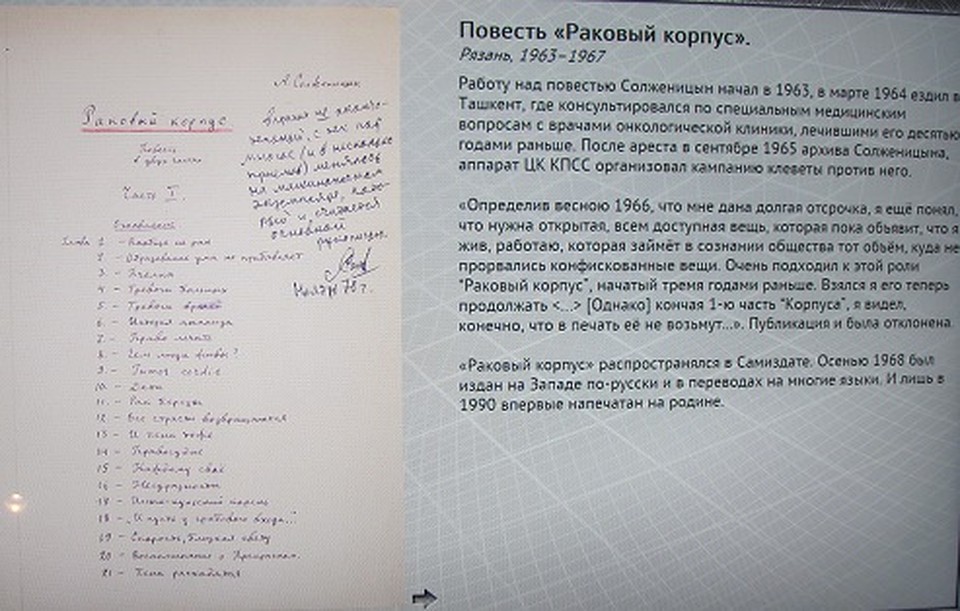 А. Солженицын
Раковый корпус
Повесть
в двух частях
Часть I.
Вариант не оконча-
тельный, с тех пор
многое (и в несколько
приёмов) менялось
на машинописном
экземпляре, кото-
рый и считается
основной
рукописью.
78 г.
Оглавление
Глава 1 - Вообще не рак
2 - Образование ума не прибавляет
3 - Пчёлка
4 - Тревоги больных
5 - Тревоги врачей
6 - История анализа
7 - Право лечить
8 - Чем люди живы?
9 - Tumor cordis
10 - Дети
11 - Рак берёзы
12 - Все страсти возвращаются
13 - И тени тоже
14 - Правосудие
15 - Каждому своё
16 - Несуразности
17 - Иссык-кульский корень
18 - „И пусть у гробового входа..."
19 - Скорость, близкая свету
20 - Воспоминание о Прекрасном.
21 - Тени расходятся
Повесть «Раковый корпус».
Рязань, 1963–1967
Работу над повестью Солженицын начал в 1963, в марте 1964 ездил в
Ташкент, где консультировался по специальным медицинским
вопросам с врачами онкологической клиники, лечившими его десятью
годами раньше. После ареста в сентябре 1965 архива Солженицына,
аппарат ЦК КПСС организовал кампанию клеветы против него.
«Определив весною 1966, что мне дана долгая отсрочка, я ещё понял,
что нужна открытая, всем доступная вещь, которая пока объявит, что я
жив, работаю, которая займёт в сознании общества тот объём, куда не
прорвались конфискованные вещи. Очень подходил к этой роли
"Раковый корпус", начатый тремя годами раньше. Взялся я его теперь
продолжать <...> [Однако] кончая 1-ю часть "Корпуса", я видел,
конечно, что в печать её не возьмут...». Публикация и была отклонена.
«Раковый корпус» распространялся в Самиздате. Осенью 1968 был
издан на Западе по-русски и в переводах на многие языки. И лишь в
1990 впервые напечатан на родине.